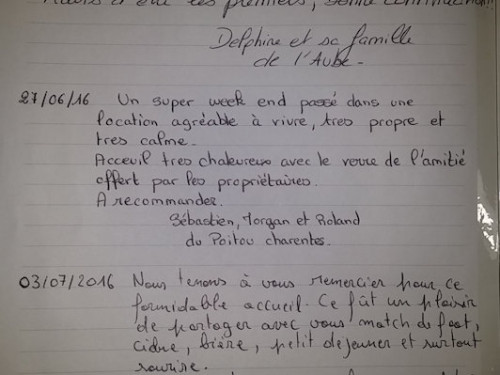 d'être les premiers, bonne continuation
Delphine et sa famille
de l'Aube.
27/06/16 Un super week end passé dans une
location agréable à vivre, tres propre et
tres calme.
Acceuil tres chaleureux avec le verre de l'amitié
offert par les propriétaires.
A recommander.
Sébastien, Morgan et Roland
du Poitou charentes.
03/07/2016 Nous tenons à vous remercier pour ce
formidable accueil. Ce fût un plaisir
de partager avec vous match de foot,
cidre, bière, petit dejeuner et surtout
sourire.